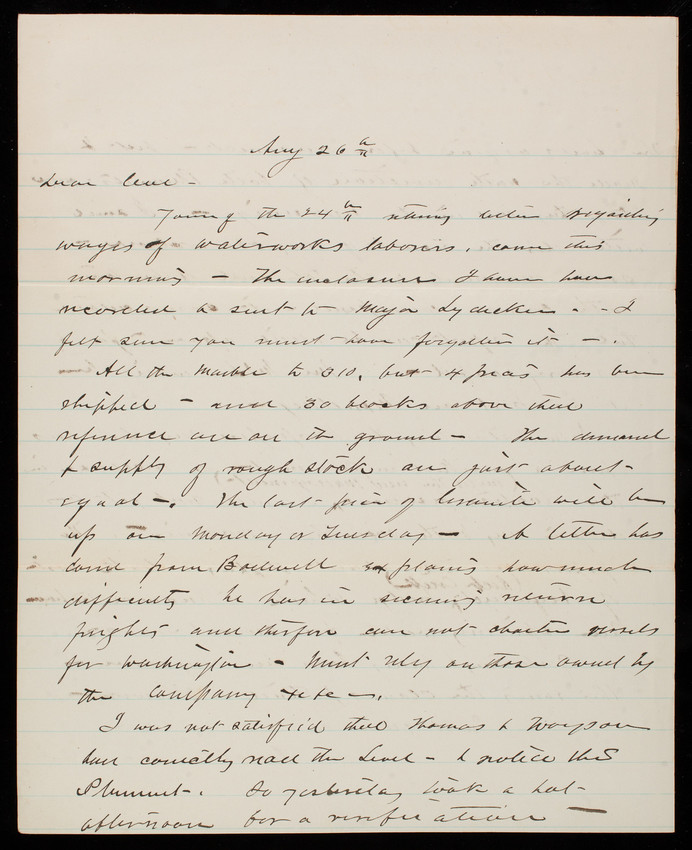 Aug 26th
Dear Col -
Yours of the 24th returning letter regarding
wages of waterworks laborers, came this
morning - The inclosure I have now
recorded & sent to Major Lydecker - - I
felt sure you must have forgotten it - .
All the marble to 310, but 4 pieces has been
shipped - and 30 blocks above that
reference are on the ground - The demand
& supply of rough stock are just about
equal - . The last pier of Granite will be
up on Monday or Tuesday - A letter has
come from Bodwell explaining how much
difficulty he has in securing return
freights and therefore can not charter vessels
for Washington - Must rely on those owned by
the company &c &c - .
I was not satisfied that Thomas &
had correctly read the Level - & notice the
Plummet - . So yesterday took a hot
afternoon for a verification -